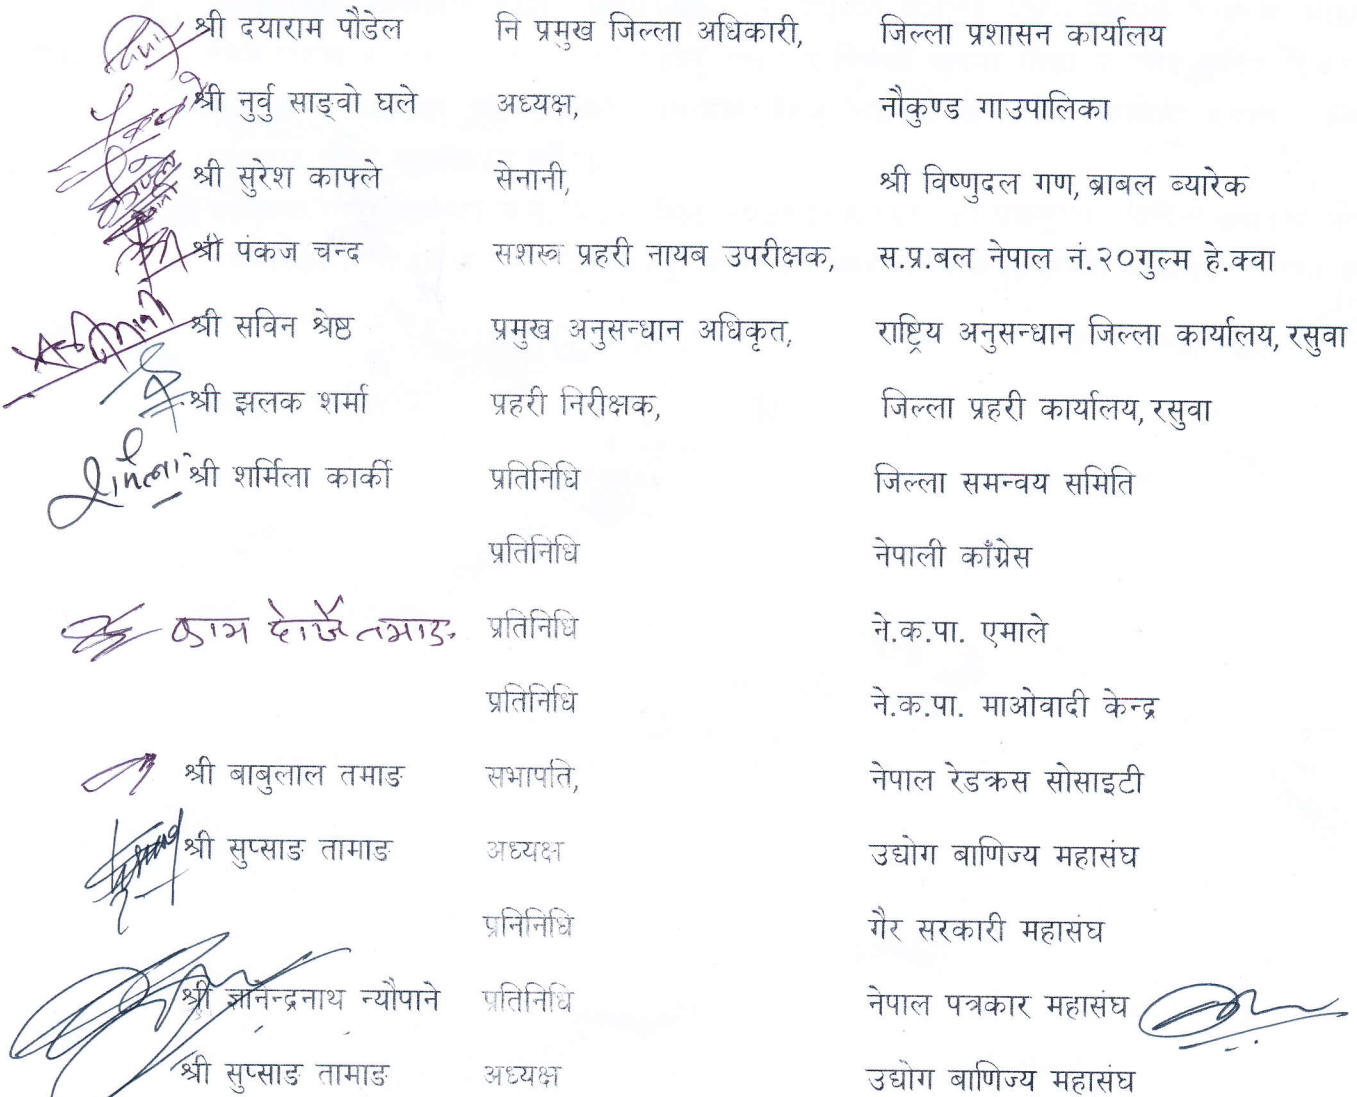 श्री दयाराम पौडेल नि प्रमुख जिल्ला अधिकारी, जिल्ला प्रशासन कार्यालय
श्री नुर्वु साङ्वो घले अध्यक्ष, नौकुण्ड गाउपालिका
श्री सुरेश काफ्ले सेनानी, श्री विष्णुदल गण, ब्राबल ब्यारेक
श्री पंकज चन्द सशस्त्र प्रहरी नायब उपरीक्षक, स.प्र.बल नेपाल नं.२०गुल्म हे.क्वा
श्री सविन श्रेष्ठ प्रमुख अनुसन्धान अधिकृत, राष्ट्रिय अनुसन्धान जिल्ला कार्यालय, रसुवा
श्री झलक शर्मा प्रहरी निरीक्षक, जिल्ला प्रहरी कार्यालय, रसुवा
श्री शर्मिला कार्की प्रतिनिधि जिल्ला समन्वय समिति
प्रतिनिधि नेपाली काँग्रेस
प्रतिनिधि ने.क.पा. एमाले
प्रतिनिधि ने.क.पा. माओवादी केन्द्र
श्री बाबुलाल तमाङ सभापति, नेपाल रेडक्रस सोसाइटी
श्री सुप्साङ तामाङ अध्यक्ष उद्योग बाणिज्य महासंघ
प्रनिनिधि गैर सरकारी महासंघ
श्री ज्ञानेन्द्रनाथ न्यौपाने प्रतिनिधि नेपाल पत्रकार महासंघ
श्री सुप्साङ तामाङ अध्यक्ष उद्योग बाणिज्य महासंघ